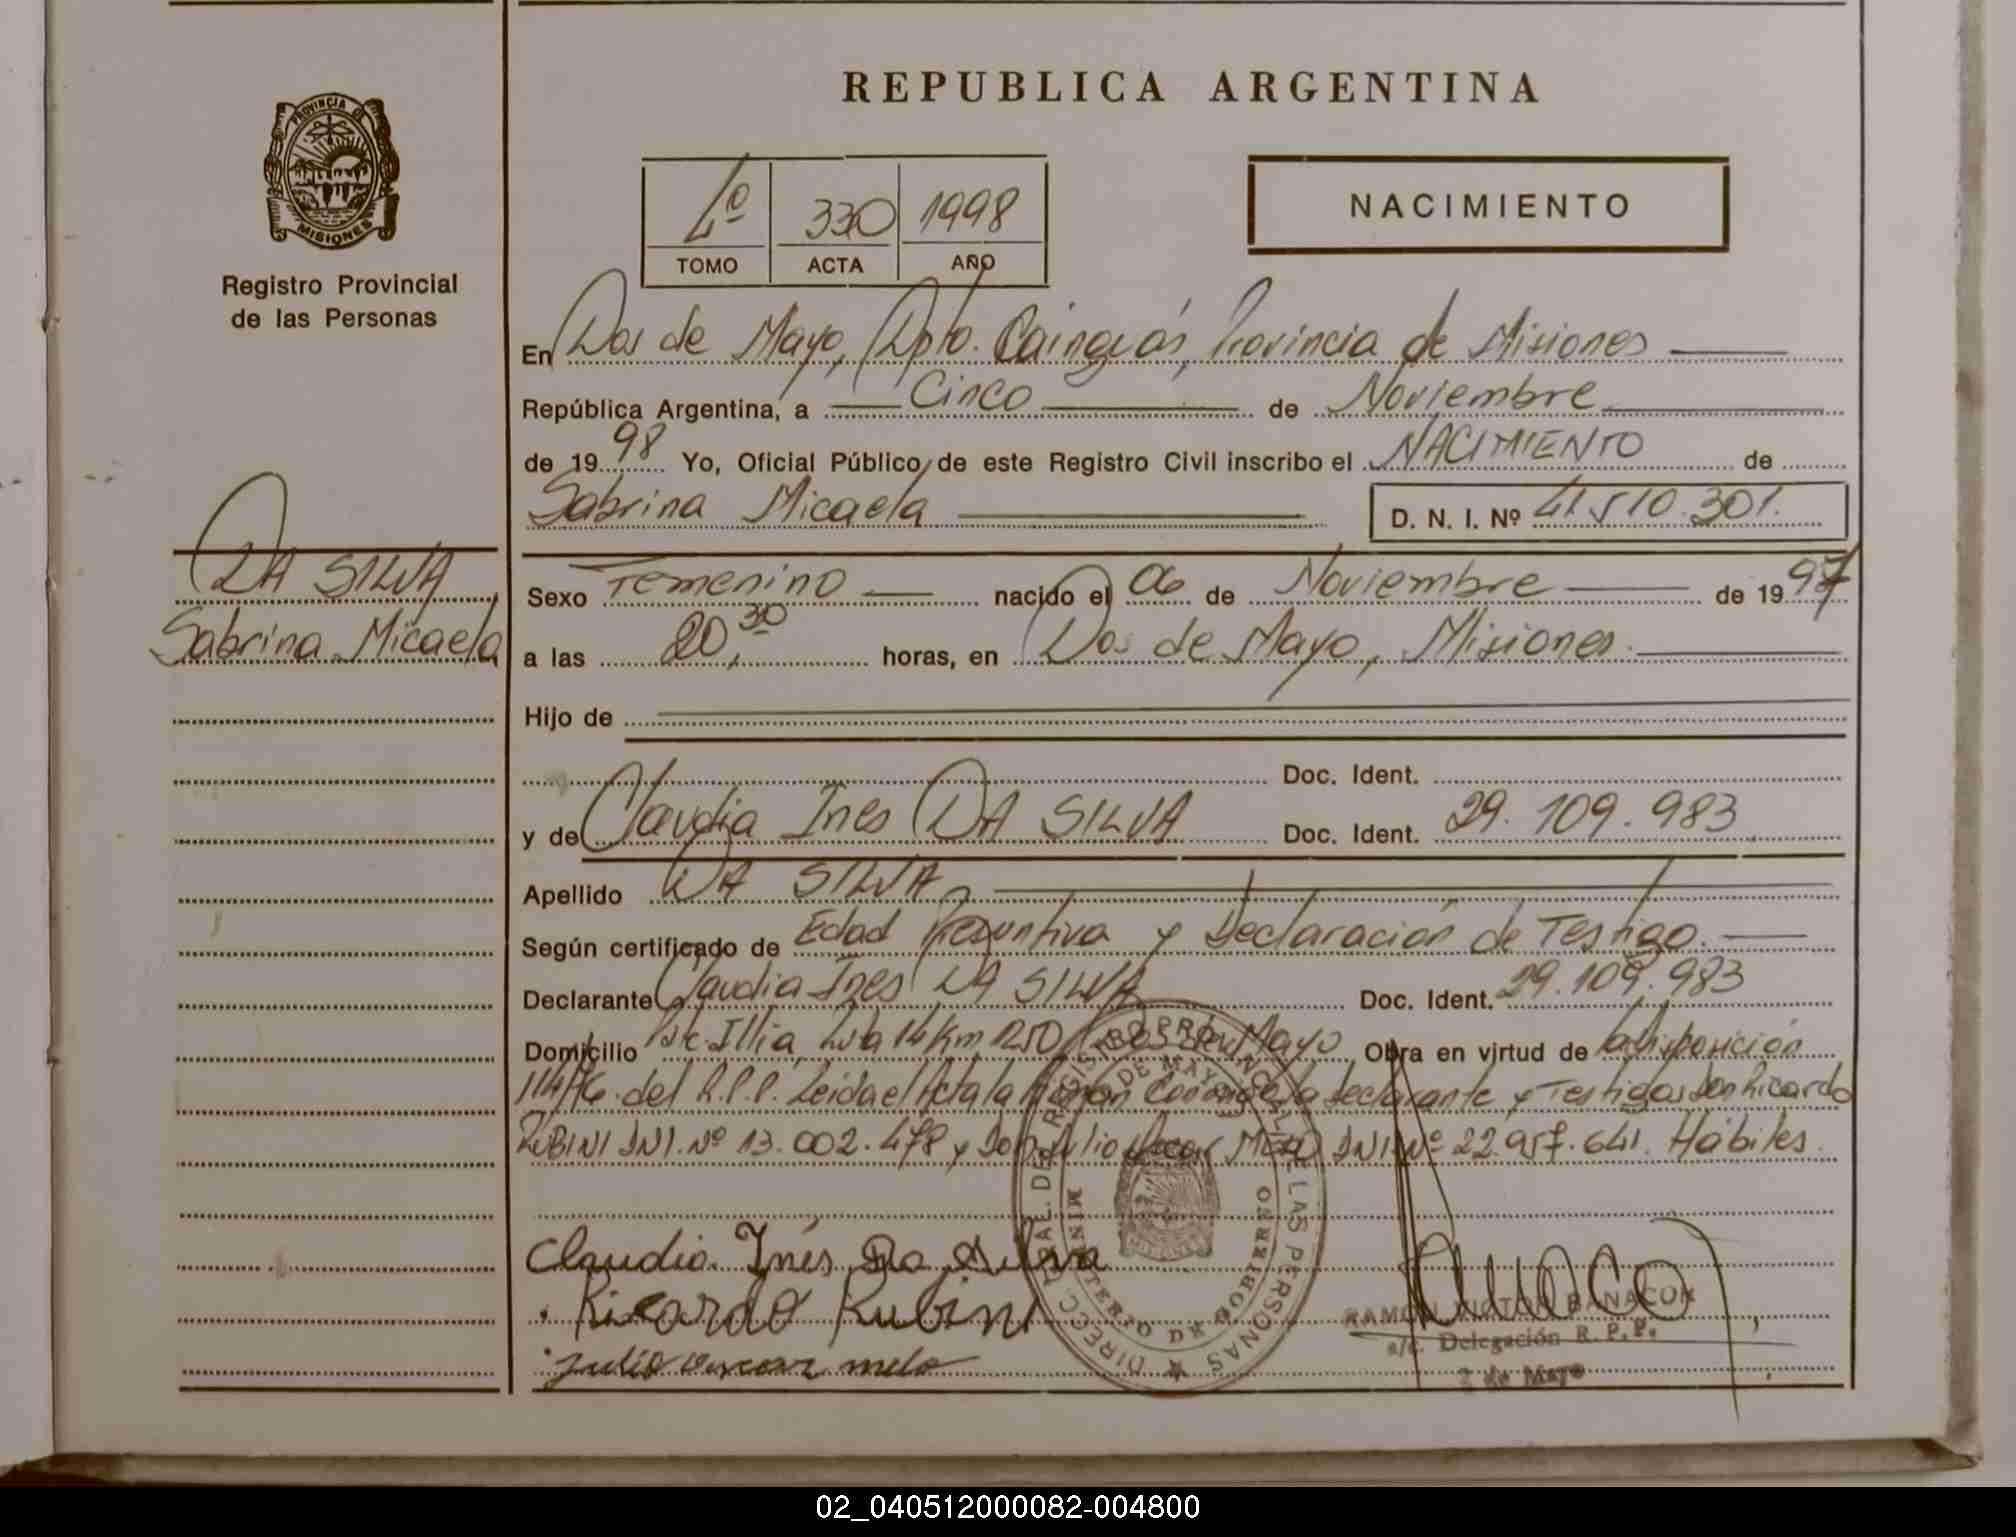 REPUBLICA ARGENTINA
PROVINCIA DE
MISIONES
Registro Provincial
de las Personas
1º 330 1998
TOMO ACTA AÑO
NACIMIENTO
En Dos de Mayo, Dpto. Cainguás, Provincia de Misiones
República Argentina, a Cinco de Noviembre
de 1998 Yo, Oficial Público de este Registro Civil inscribo el NACIMIENTO de
Sabrina Micaela D. N. I. Nº 41.510.301.
DA SILVA
Sabrina Micaela
Sexo Femenino nacido el 06 de Noviembre de 1997
a las 20,30 horas, en Dos de Mayo, Misiones.
Hijo de
Doc. Ident.
y de Claudia Ines DA SILVA Doc. Ident. 29.109.983
Apellido DA SILVA
Según certificado de Edad Presuntiva y Declaración de Testigo.
Declarante Claudia Ines DA SILVA Doc. Ident. 29.109.983
Domicilio Pte. Illia, Ruta 14 Km 1250 Dos de Mayo Obra en virtud de la disposición
114/76 del R.P.P. Leida el Acta la firman Conmigo la declarante y Testigos Don Ricardo
RUBINI DNI. Nº 13.002.478 y Don Julio Oscar MELO DNI. Nº 22.957.641. Hábiles.
Claudia Inés Da Silva
Ricardo Rubini
Julio oscar melo
DIRECC. GRAL. DE REGISTRO PROVINCIAL DE LAS PERSONAS
MINISTERIO DE GOBIERNO
DOS DE MAYO
RAMON VICTOR BANACOR
a/c. Delegación R. P. P.
2 de Mayo
02_040512000082-004800